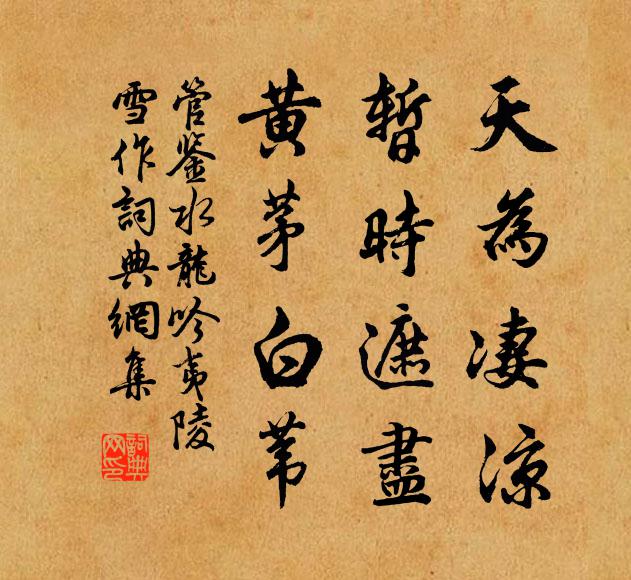 天為凄涼
暫時遮盡
黃茅白葦
管鉴水龍吟夷陵
雪作詞典網集
詞典
网印